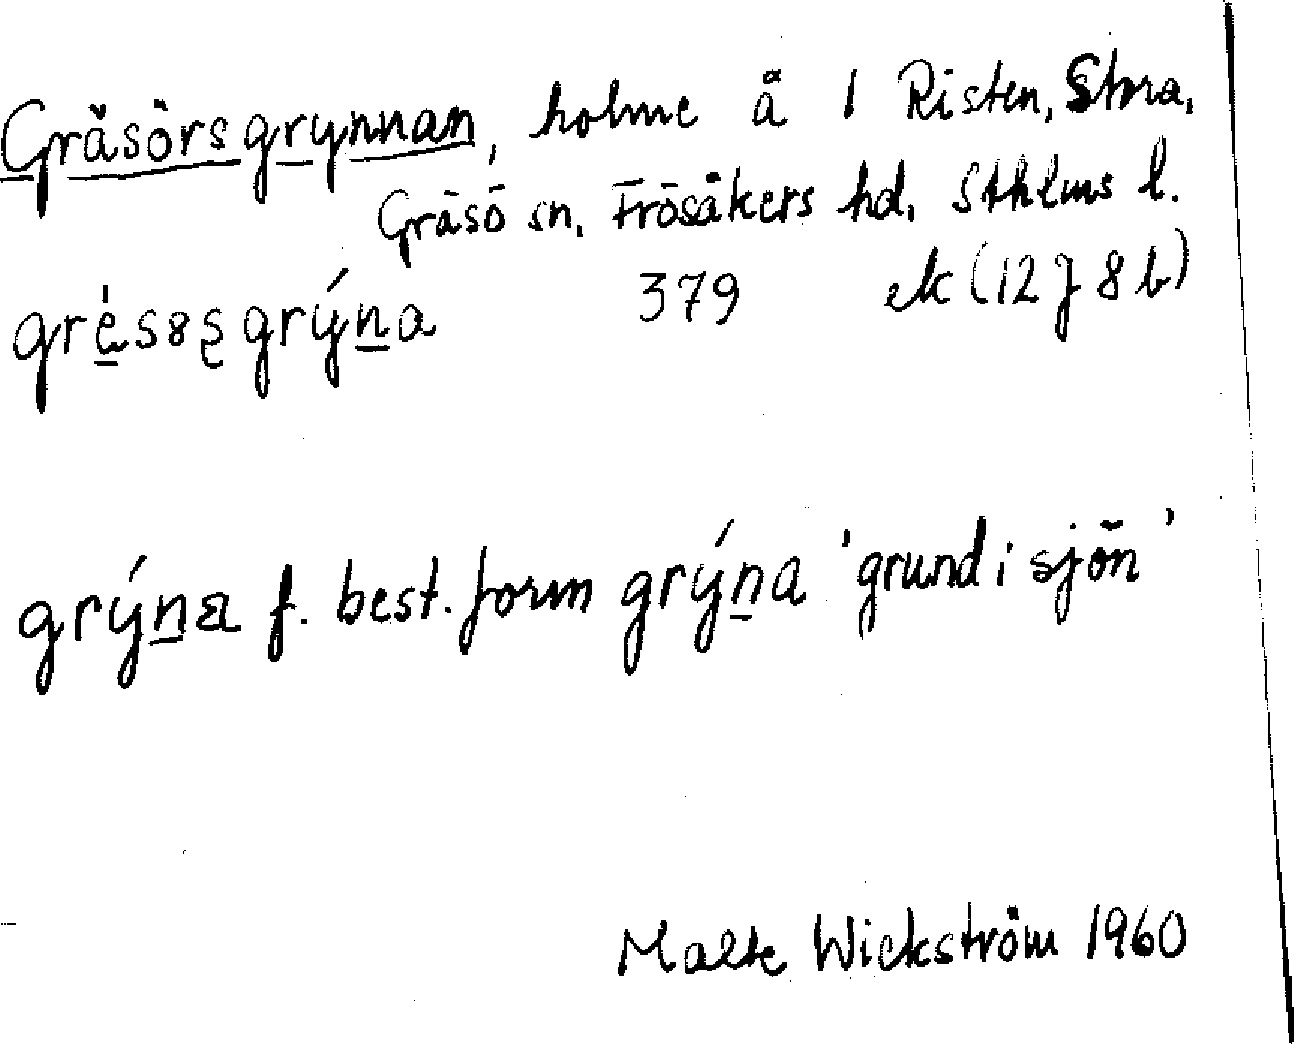 Gräsörsgrynnan, holme å 1 Risten, Stora,
Gräsö sn, Frösåkers hd, Sthlms l.
grésȣʂgrýna 379 ek (12 J 8 b)
grýna f. best. form grýna 'grund i sjön'
Malte Wickström 1960